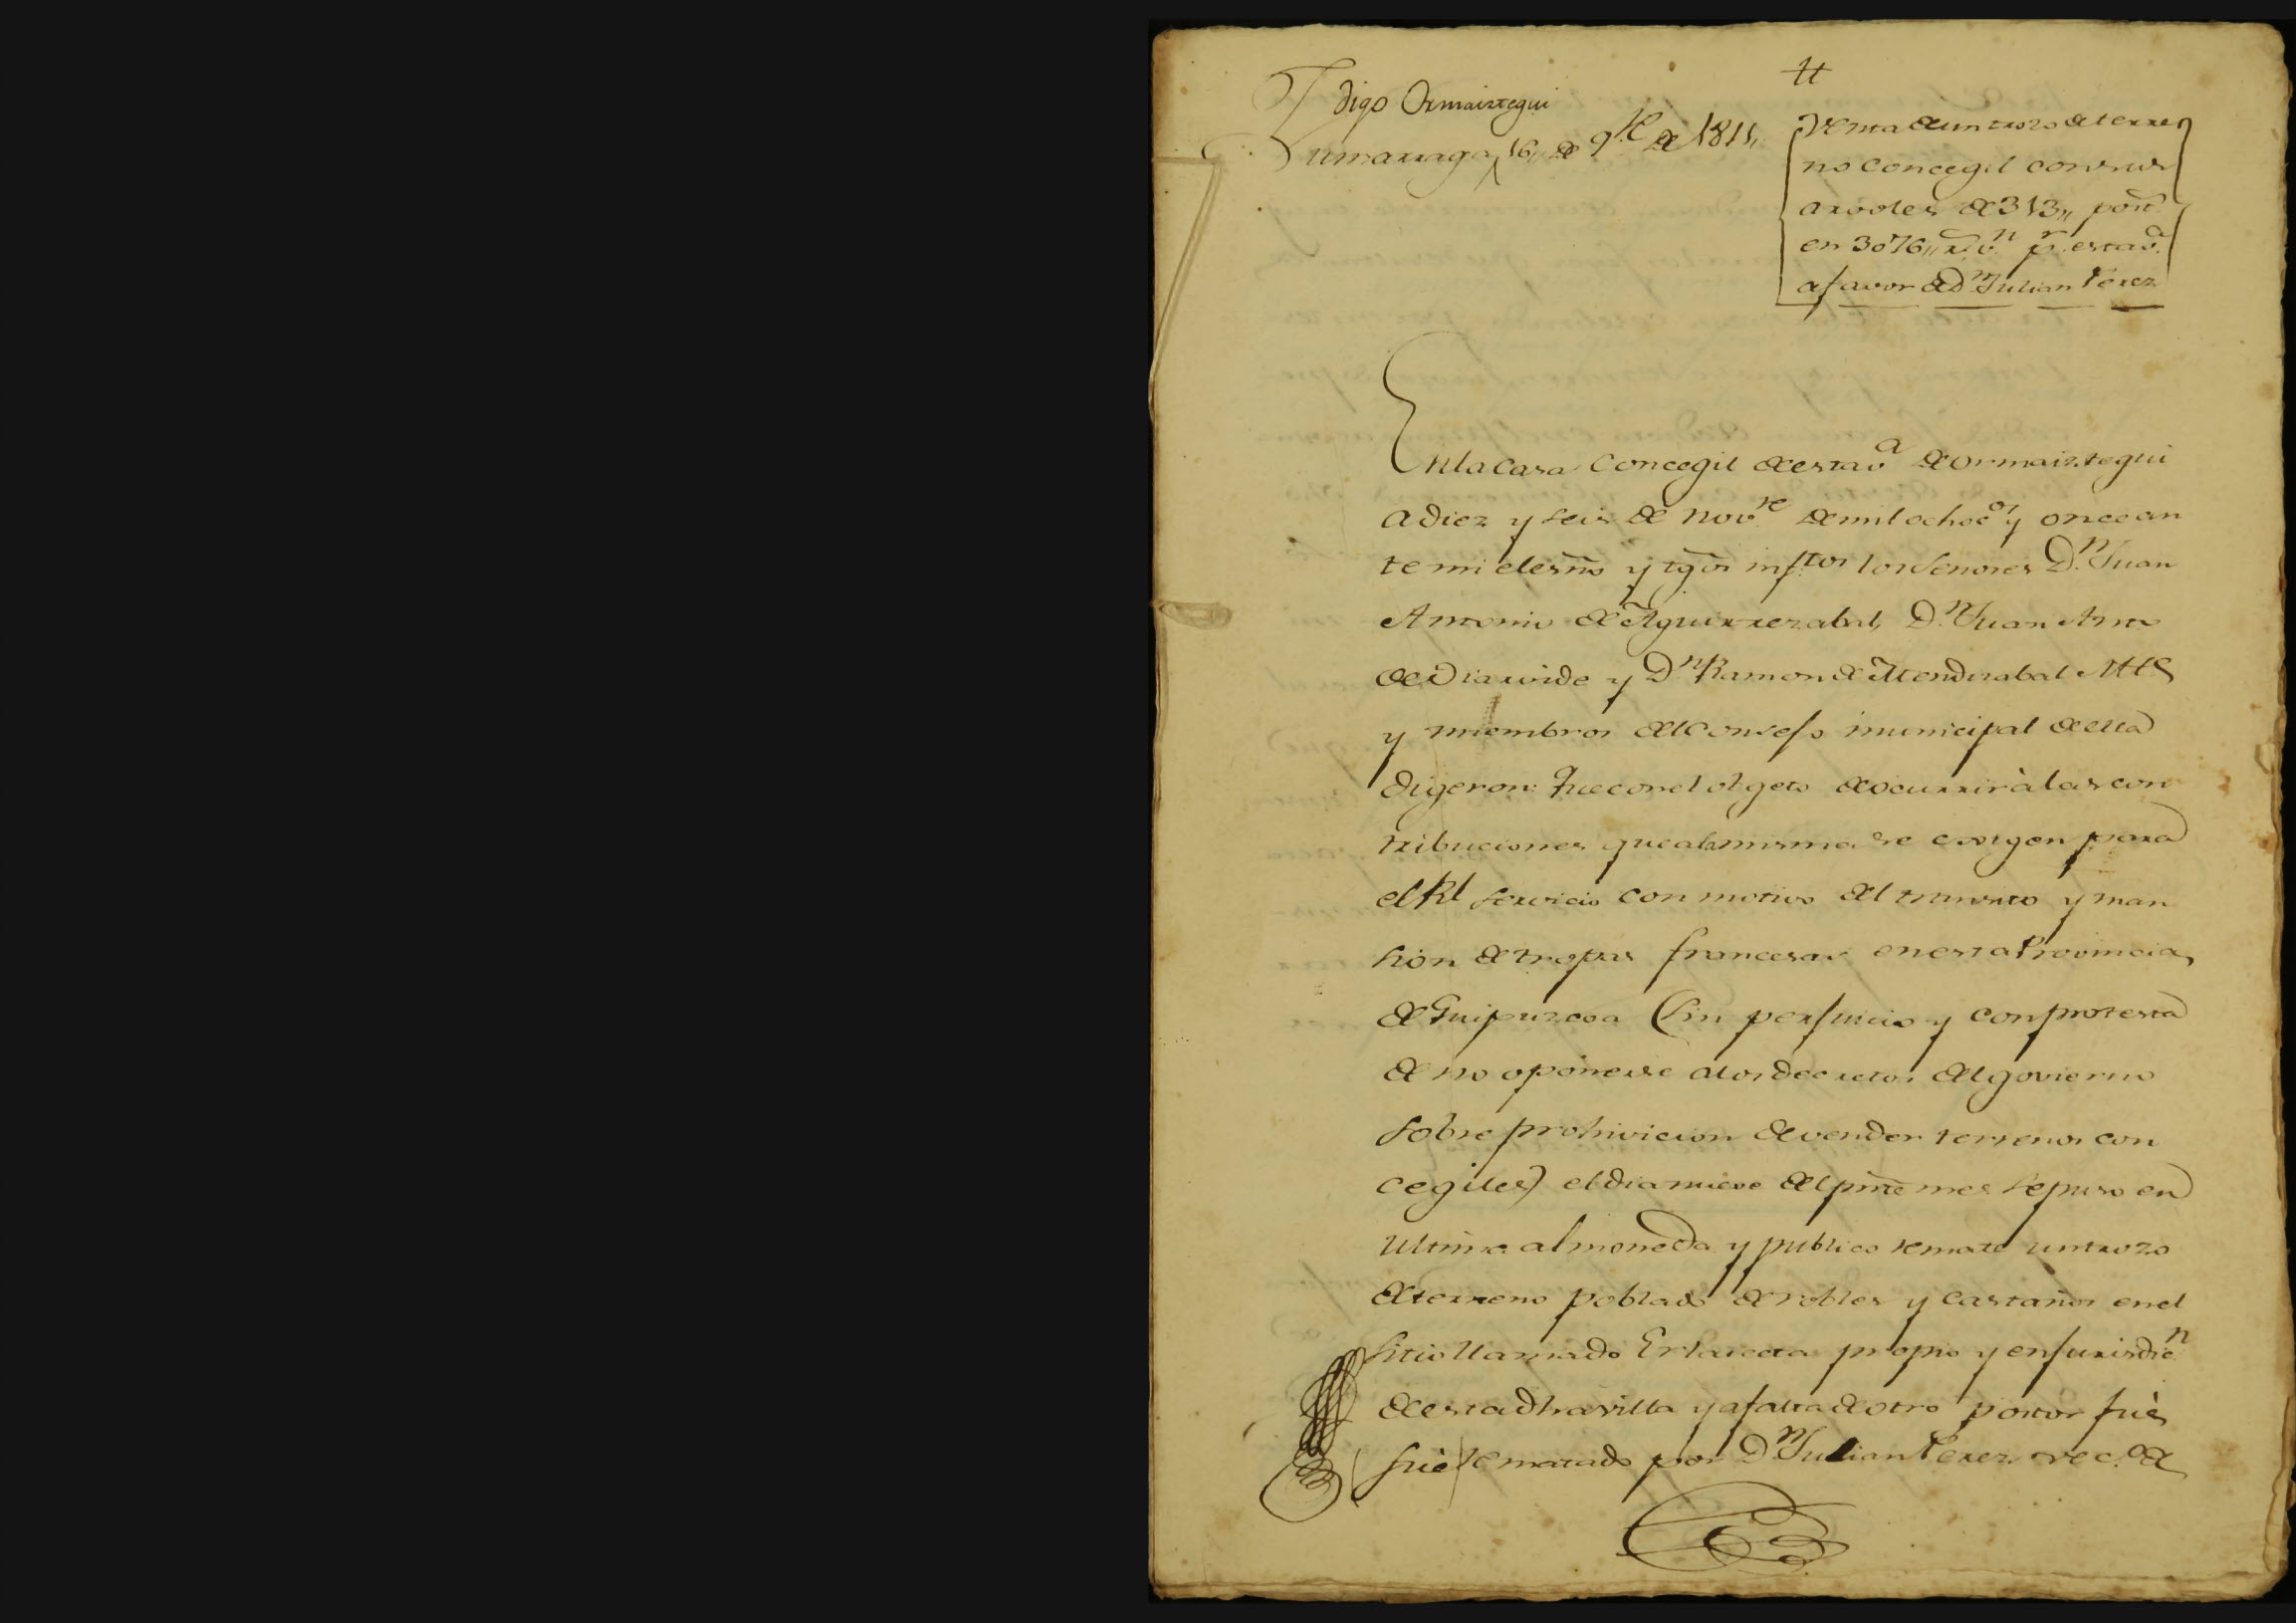 digo Ormaiztegui
Zumarraga 16,, de 9.re de 1811,,
#
Venta de un trozo de terre
no concegil con sus
arvoles de 313,, post.
en 3076,, r.s v.n p.r esta v.a
a favor de D.n Julian Perez
En la casa Concegil de esta v.a de Ormaiztegui
a diez y seis de Nov.re de mil ochoc.os y once an
te mi el esño y tgõs infr.tos los Senores D.n Juan
Antonio de Aguirrezabal, D.n Juan Anto
de Diarvide y D.n Ramon de Mendizabal Mtes
y miembros del Consejo municipal de ella
digeron: Que con el obgeto de ocurrir à las con
tribuciones que a la misma se exigen para
el Rl servicio con motivo del transito y man
sion de tropas francesas en esta Provincia
de Guipuzcoa (sin perjuicio y con protesta
de no oponerse a los decretos del govierno
sobre prohivicion de vender terrenos con
cegiles) el dia nueve del pnte mes se puso en
ultima almoneda y publico remate un trozo
de terreno poblado de robles y castaños en el
sitio llamado Erlaeta propio y en jurisdic.n
de esta dha villa y a falta de otro postor fuè
fuè rematado por D.n Julian Perez vec.o de